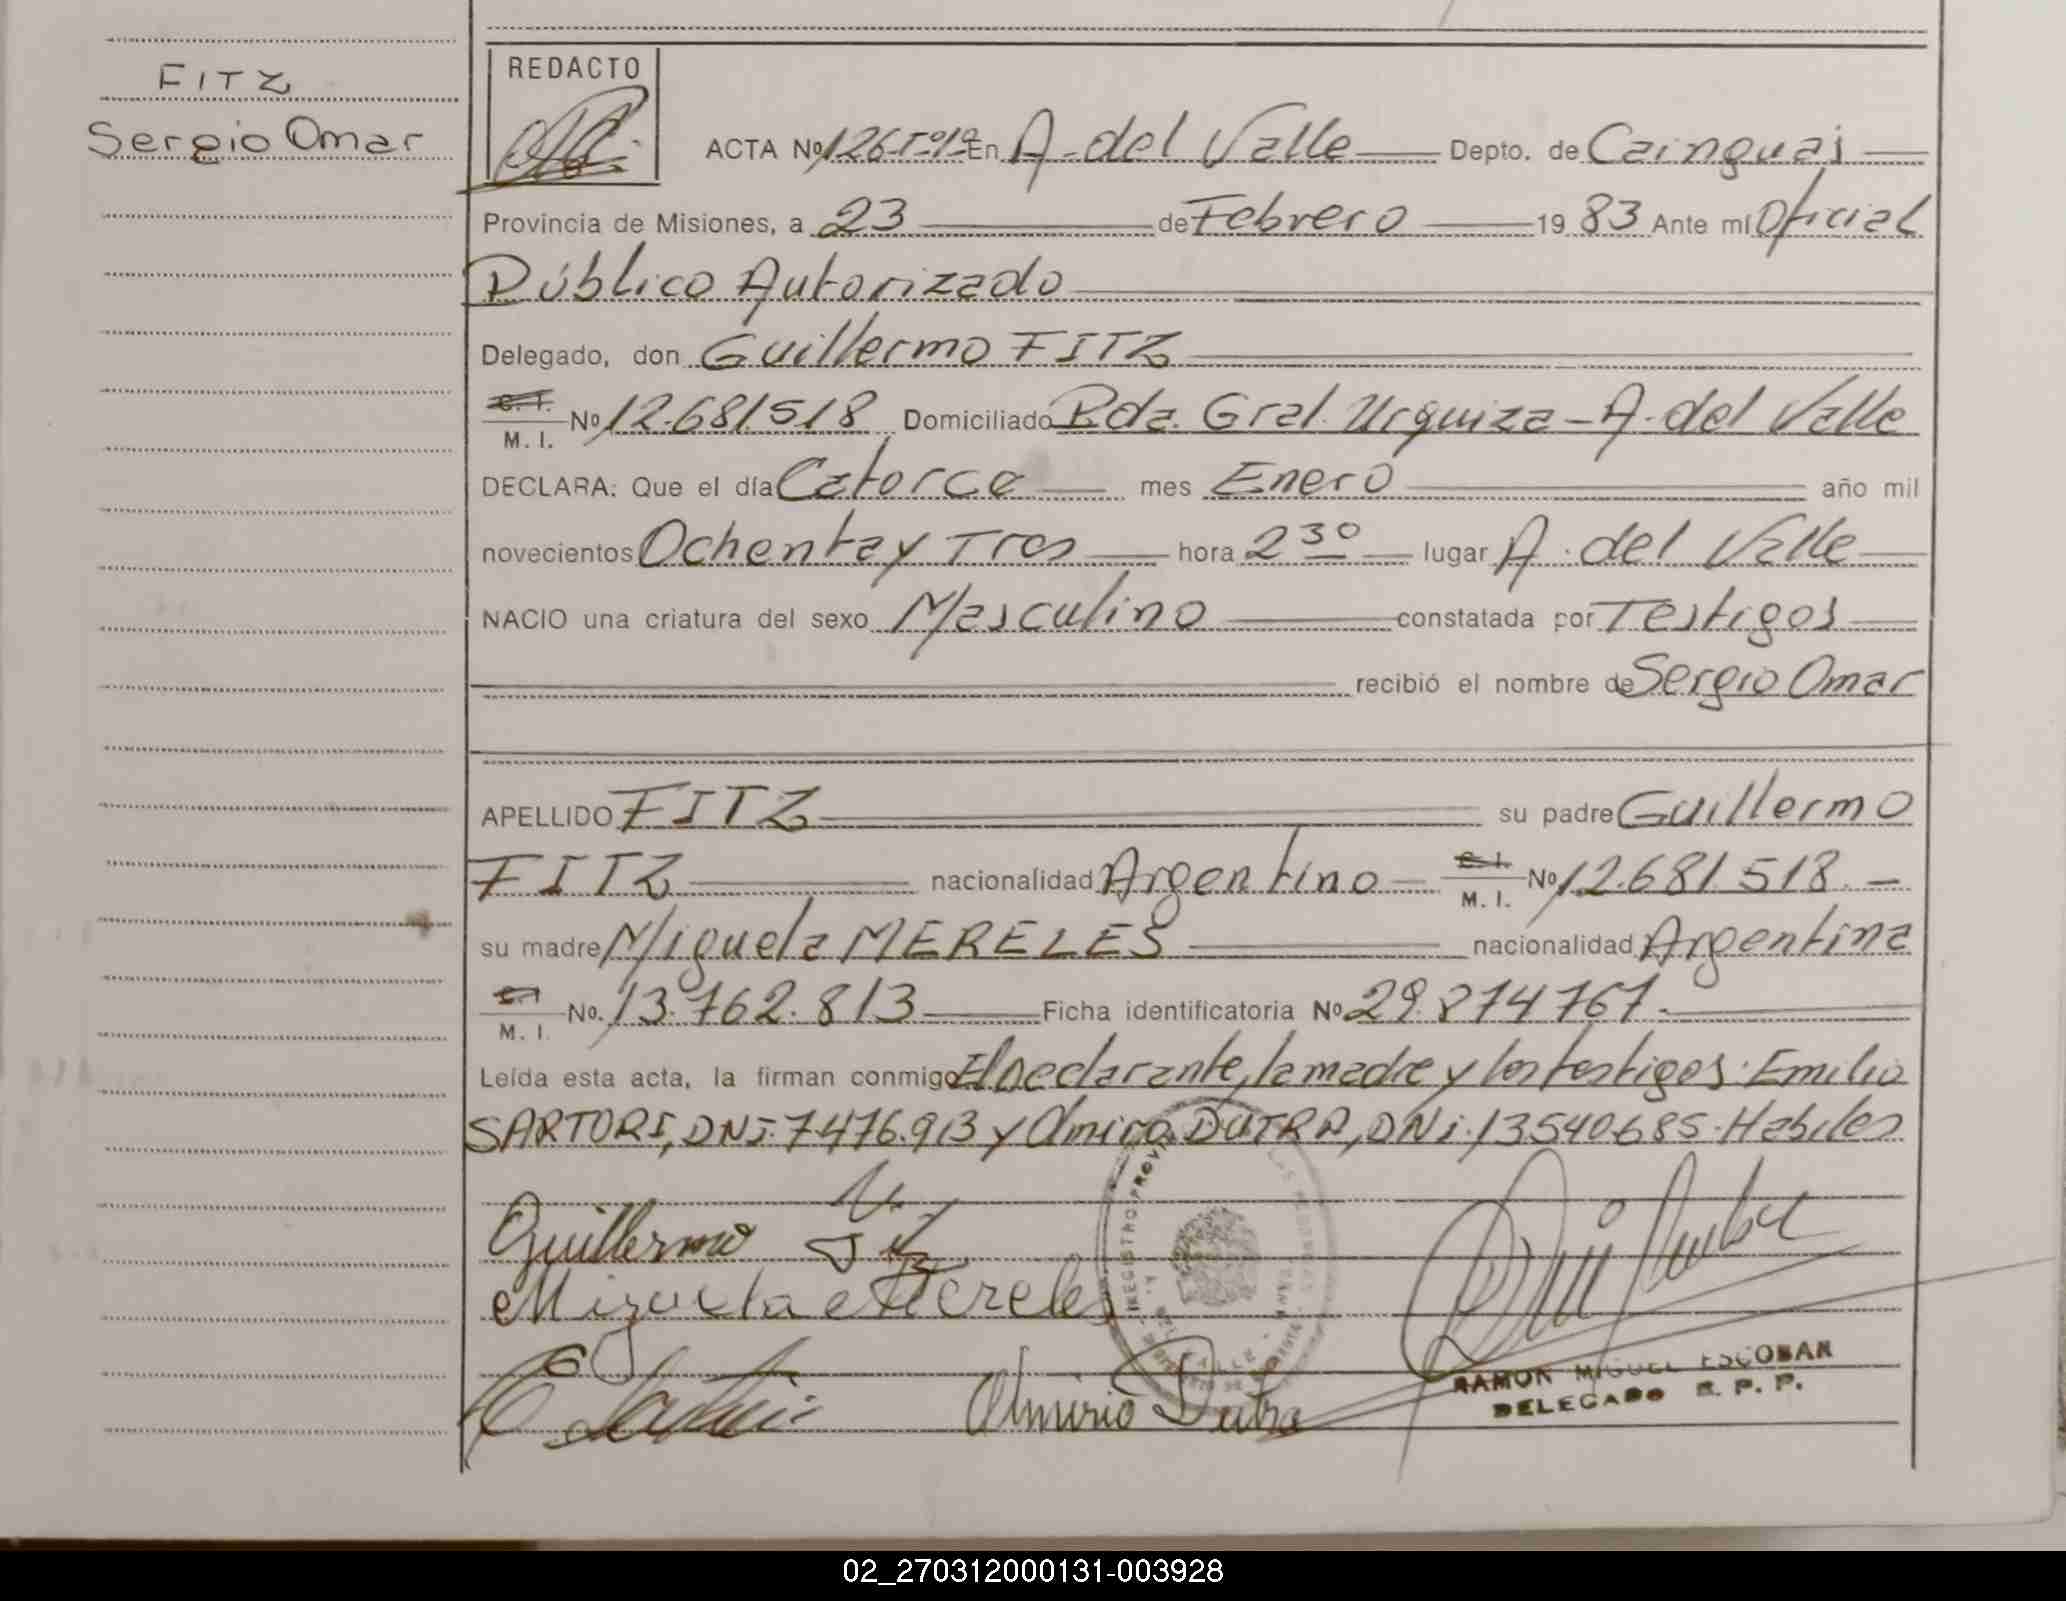 FITZ
Sergio Omar
REDACTO
ACTA Nº 126-Tº1º En A. del Valle Depto. de Cainguás
Provincia de Misiones, a 23 de Febrero 19 83 Ante mí Oficial
Público Autorizado
Delegado, don Guillermo FITZ
C. I. M. I. Nº 12.681.518 Domiciliado Bda. Gral. Urquiza - A. del Valle
DECLARA: Que el día Catorce mes Enero año mil
novecientos Ochenta y Tres hora 2 30 lugar A. del Valle
NACIO una criatura del sexo Masculino constatada por Testigos
recibió el nombre de Sergio Omar
APELLIDO FITZ su padre Guillermo
FITZ nacionalidad Argentino C. I. M. I. Nº 12.681.518.-
su madre Miguela MERELES nacionalidad Argentina
C. I. M. I. No. 13.762.813 Ficha identificatoria Nº 29.874767.-
Leída esta acta, la firman conmigo El Declarante, la madre y los testigos: Emilio
SARTORI, DNI. 7476.913 y Olmiro DUTRA, DNi. 13540.685. Habiles
Guillermo Fitz
Miguela Mereles
Olmirio Dutra
RAMON MIGUEL ESCOBAR
DELEGADO R. P. P.
02_270312000131-003928